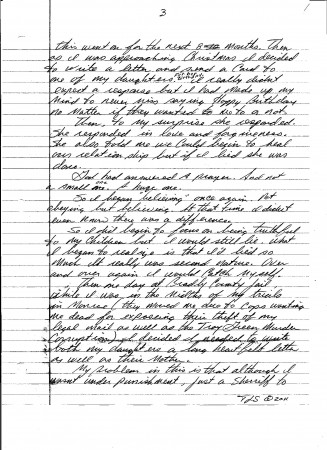 3
this went on for the next 8 months. Then
as it was approaching Christmas I decided
to write a letter and send a Card to
one of my daughters. I really didn't
expect a response but I had made up my
Mind to never miss saying Happy Birthday
No Matter if they wanted to or not.
Then, to my surprise she responded.
She responded in love and forgiveness.
She also told me we Could begin to heal
our relationship but if I lied she was
done.
God had answered A prayer. And not
a small one. A huge one.
So I began "believing" once again. Not
obeying but believing. At that time I didn't
even know there was a difference.
So I did begin to focus on being truthful
to My Children but I would still lie. What
I began to realize is that I'd lied so
Much it really was second Nature. Over
and over again I would Catch Myself.
Then one day at Bradley County jail
while I was in the Midst of my trials
in Monroe, they moved me due to Cops wanting
me dead for exposing their theft of my
Legal Mail as well as the Troy Green Murder
Corruption, I decided I needed to write
both my daughters a long heart felt letter
as well as their Mother.
My problem in this is that although I
wasn't under punishment, just a Sherriff to
TDS © 2011